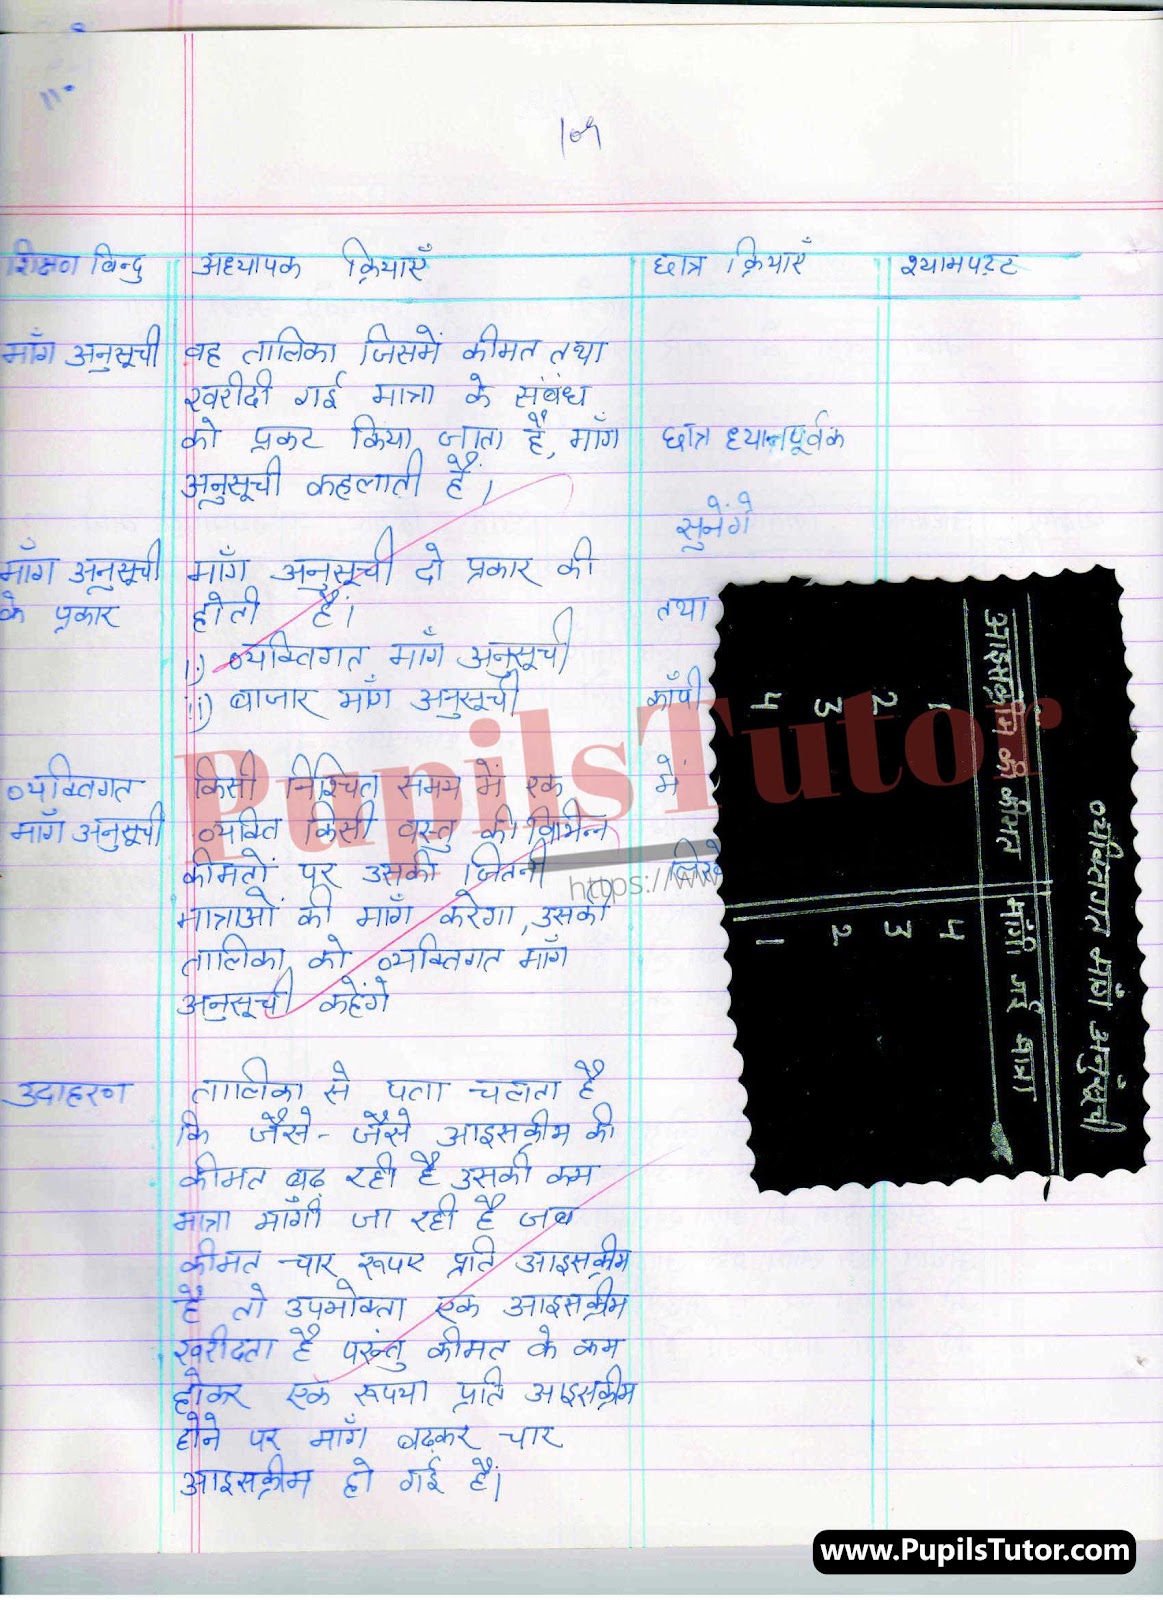 शिक्षण बिन्दु
अध्यापक क्रियाएँ
छात्र क्रियाएँ
श्यामपट्ट
माँग अनुसूची
वह तालिका जिसमें कीमत तथा
खरीदी गई मात्रा के संबंध
को प्रकट किया जाता है, माँग
अनुसूची कहलाती है।
माँग अनुसूची
के प्रकार
माँग अनुसूची दो प्रकार की
होती है।
i) व्यक्तिगत माँग अनुसूची
ii) बाजार माँग अनुसूची
व्यक्तिगत
माँग अनुसूची
किसी निश्चित समय में एक
व्यक्ति किसी वस्तु की विभिन्न
कीमतों पर उसकी जितनी
मात्राओं की माँग करेगा, उसकी
तालिका को व्यक्तिगत माँग
अनुसूची कहेंगे
उदाहरण
तालिका से पता चलता है
कि जैसे-जैसे आइसक्रीम की
कीमत बढ़ रही है उसकी कम
मात्रा माँगी जा रही है जब
कीमत चार रूपए प्रति आइसक्रीम
है तो उपभोक्ता एक आइसक्रीम
खरीदता है परंन्तु कीमत के कम
होकर एक रूपया प्रति आइसक्रीम
होने पर माँग बढ़कर चार
आइसक्रीम हो गई है।
छात्र ध्यानपूर्वक
सुनेंगे
तथा
कॉपी
में
व्यक्तिगत मांग अनुसूची
आइसक्रीम की कीमत मांगी गई मात्रा
1 4
2 3
3 2
4 1
PupilsTutor
https://www
www.PupilsTutor.com